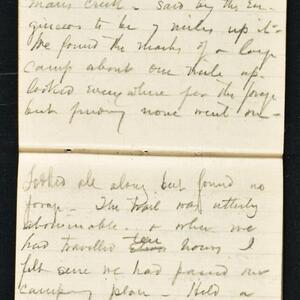 mans Creek - said by the En-
gineers to be 7 miles up it -
We found the marks of a large
camp about one mile up.
looked everywhere for the forage
but finding none went on -
Looked all along but found no
forage - The trail was utterly
abominable - & when we
had travelled ten hours I
felt sure we had passed our
camping place - Held a